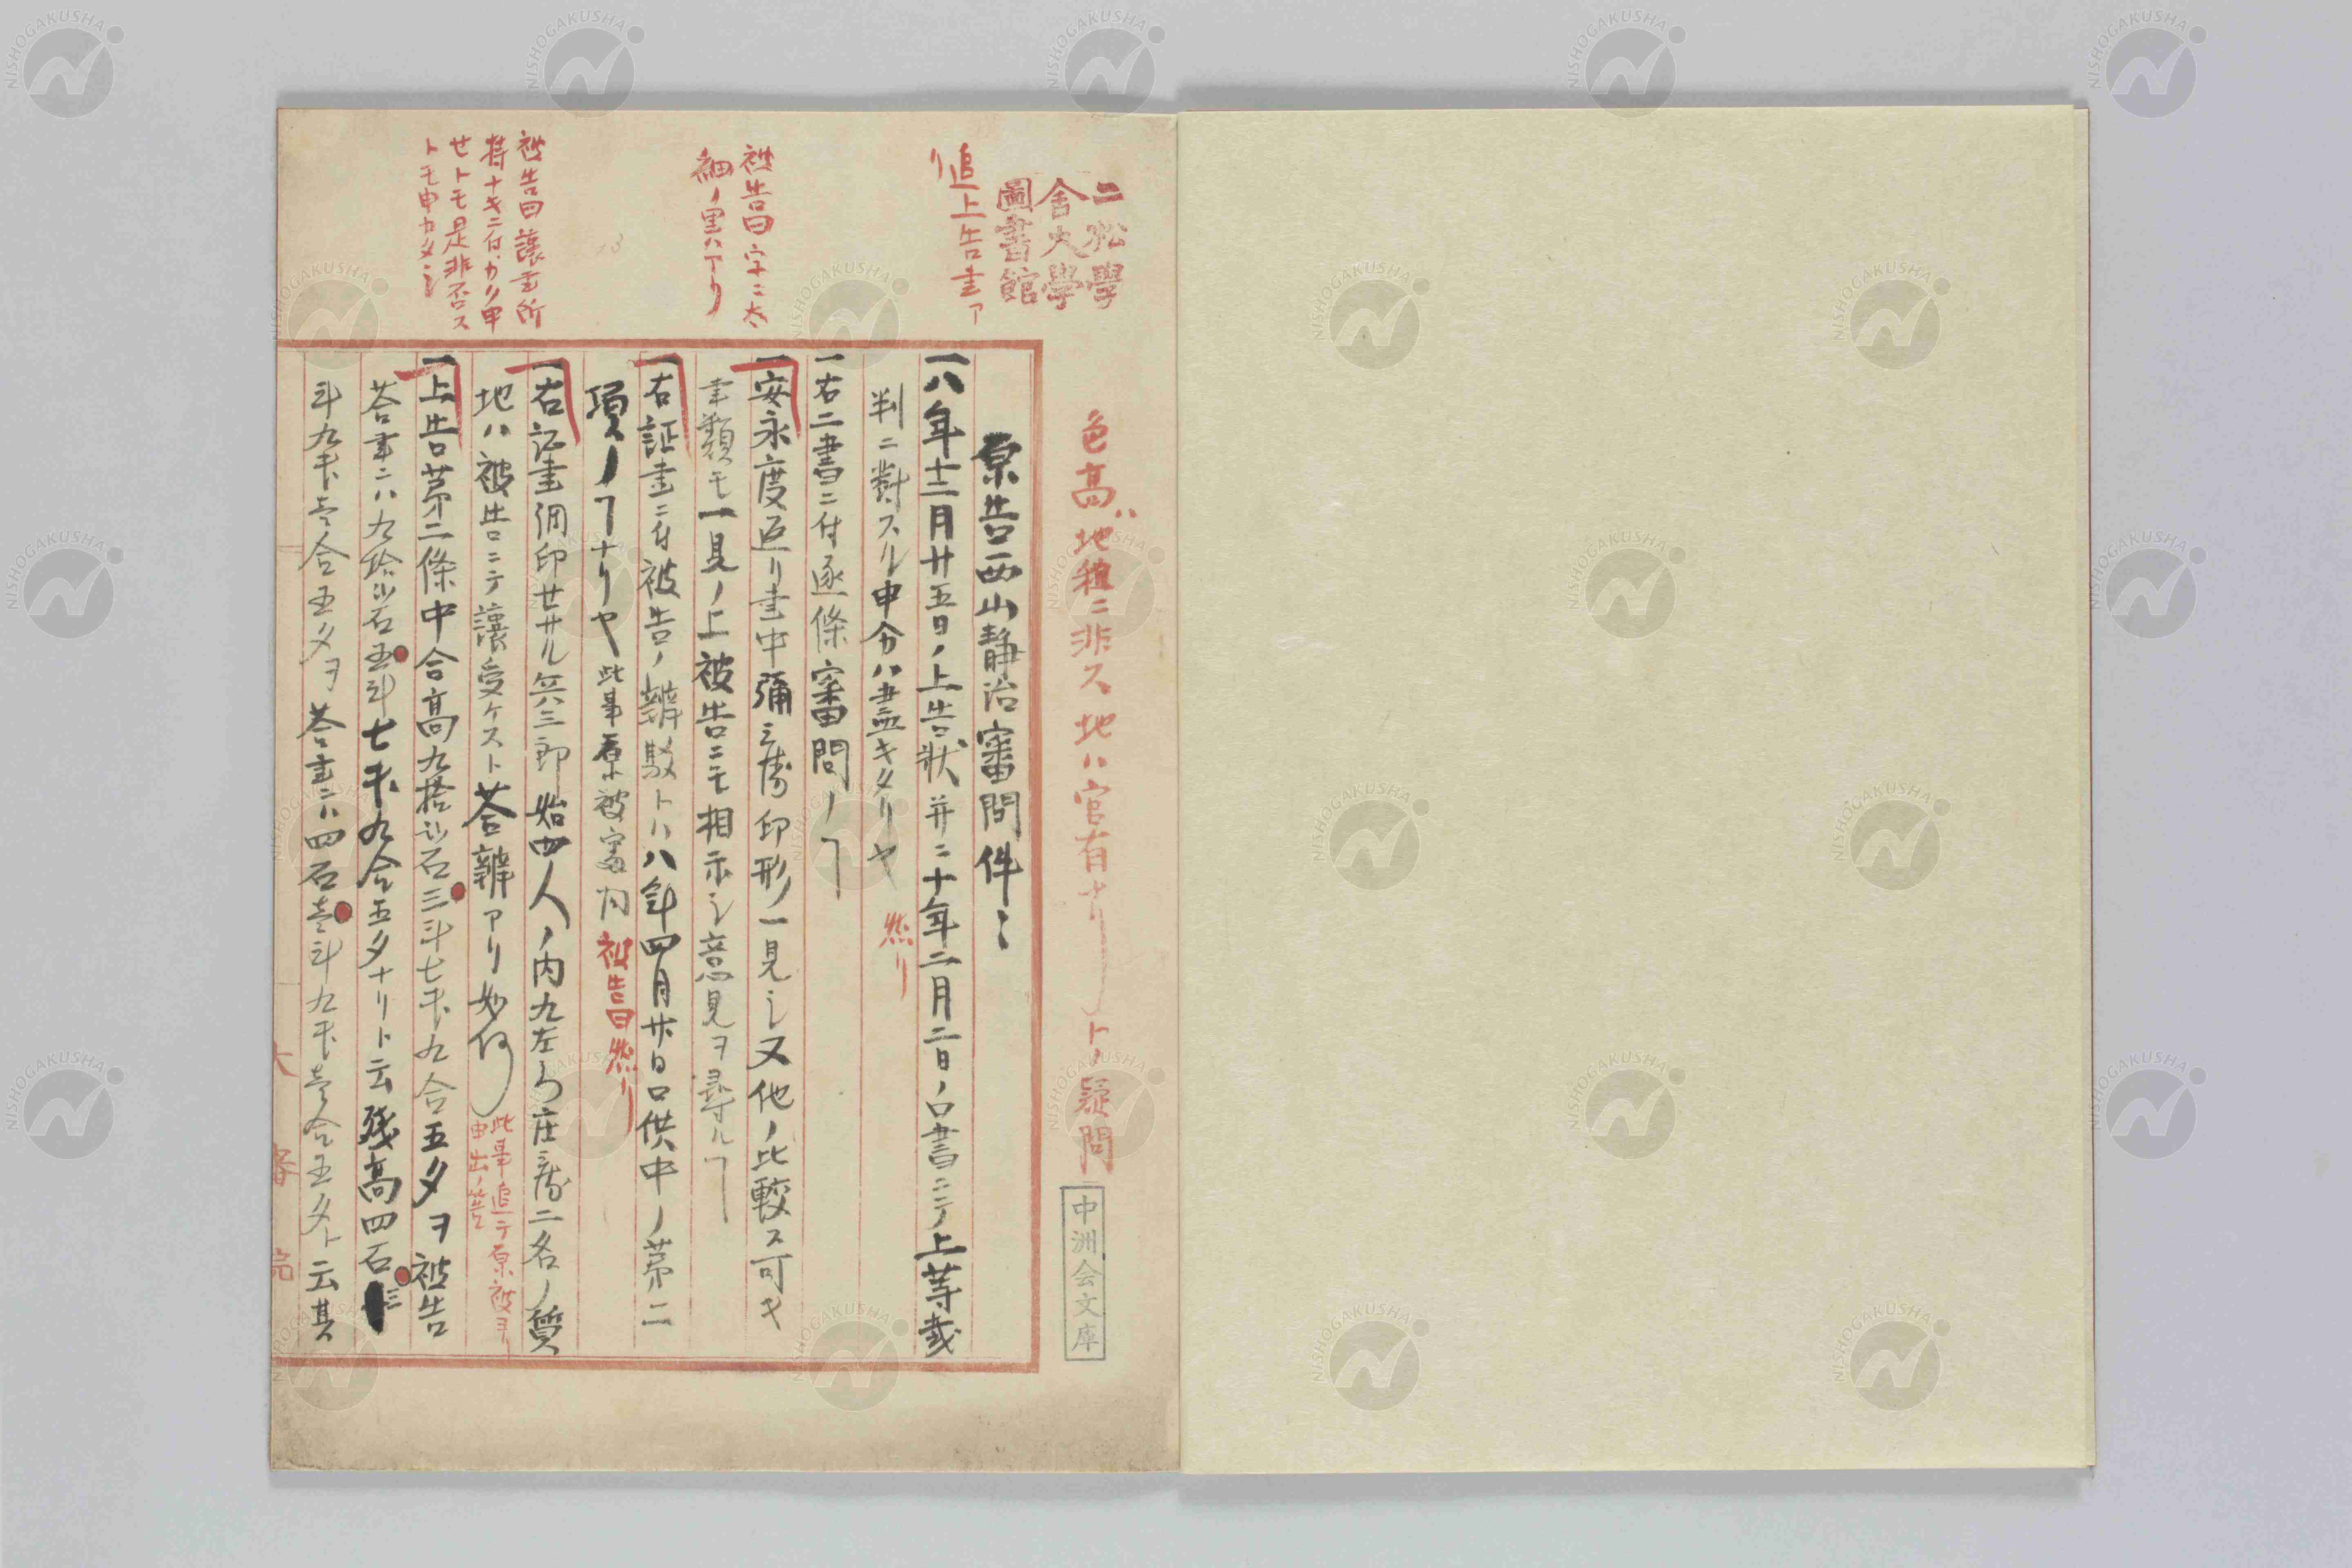 二松學
舍大學
圖書館
色高ハ地種ニ非ス地ハ官有ナリトノ疑問
中洲会文庫
追上告書ア
リ
原告西山静治審問件〻
一八年十二月廿五日ノ上告状并ニ十年二月二日ノ口書ニテ上等裁
判ニ對スル申分ハ盡キタリヤ 然リ
一右二書ニ付逐條審問ノヿ
被告曰字ニ太
細ノ異ハアリ
一安永度返リ書中彌三郎印形ノ一見シ又他ノ比較ス可キ
書類モ一見ノ上被告ニモ相示シ意見ヲ尋ルヿ
一右証書ニ付被告ノ辨駁トハ八年四月廿日口供中ノ第二
項ノヿナリヤ此事原被審問 被告曰然リ
被告曰讓書所
持ナキニ付カリ申
セトモ是非否ス
トモ申カタシ
一右証書調印セサル矣三郎始四人ノ内九左ヱ門庄蔵二名ノ質
地ハ被告ニテ讓受ケスト荅辨アリ如何
此事追テ原被ヲ
申出ノ筈
一上告第二條中合高九拾弐石三斗七升九合五夕ヲ被告
荅書ニハ九拾弐石五斗七升九合五夕ナリト云残高四石三
斗九升壱合五夕ヲ荅書ニハ四石壱斗九升壱合五夕ト云其
大審院
NISHOGAKUSHA